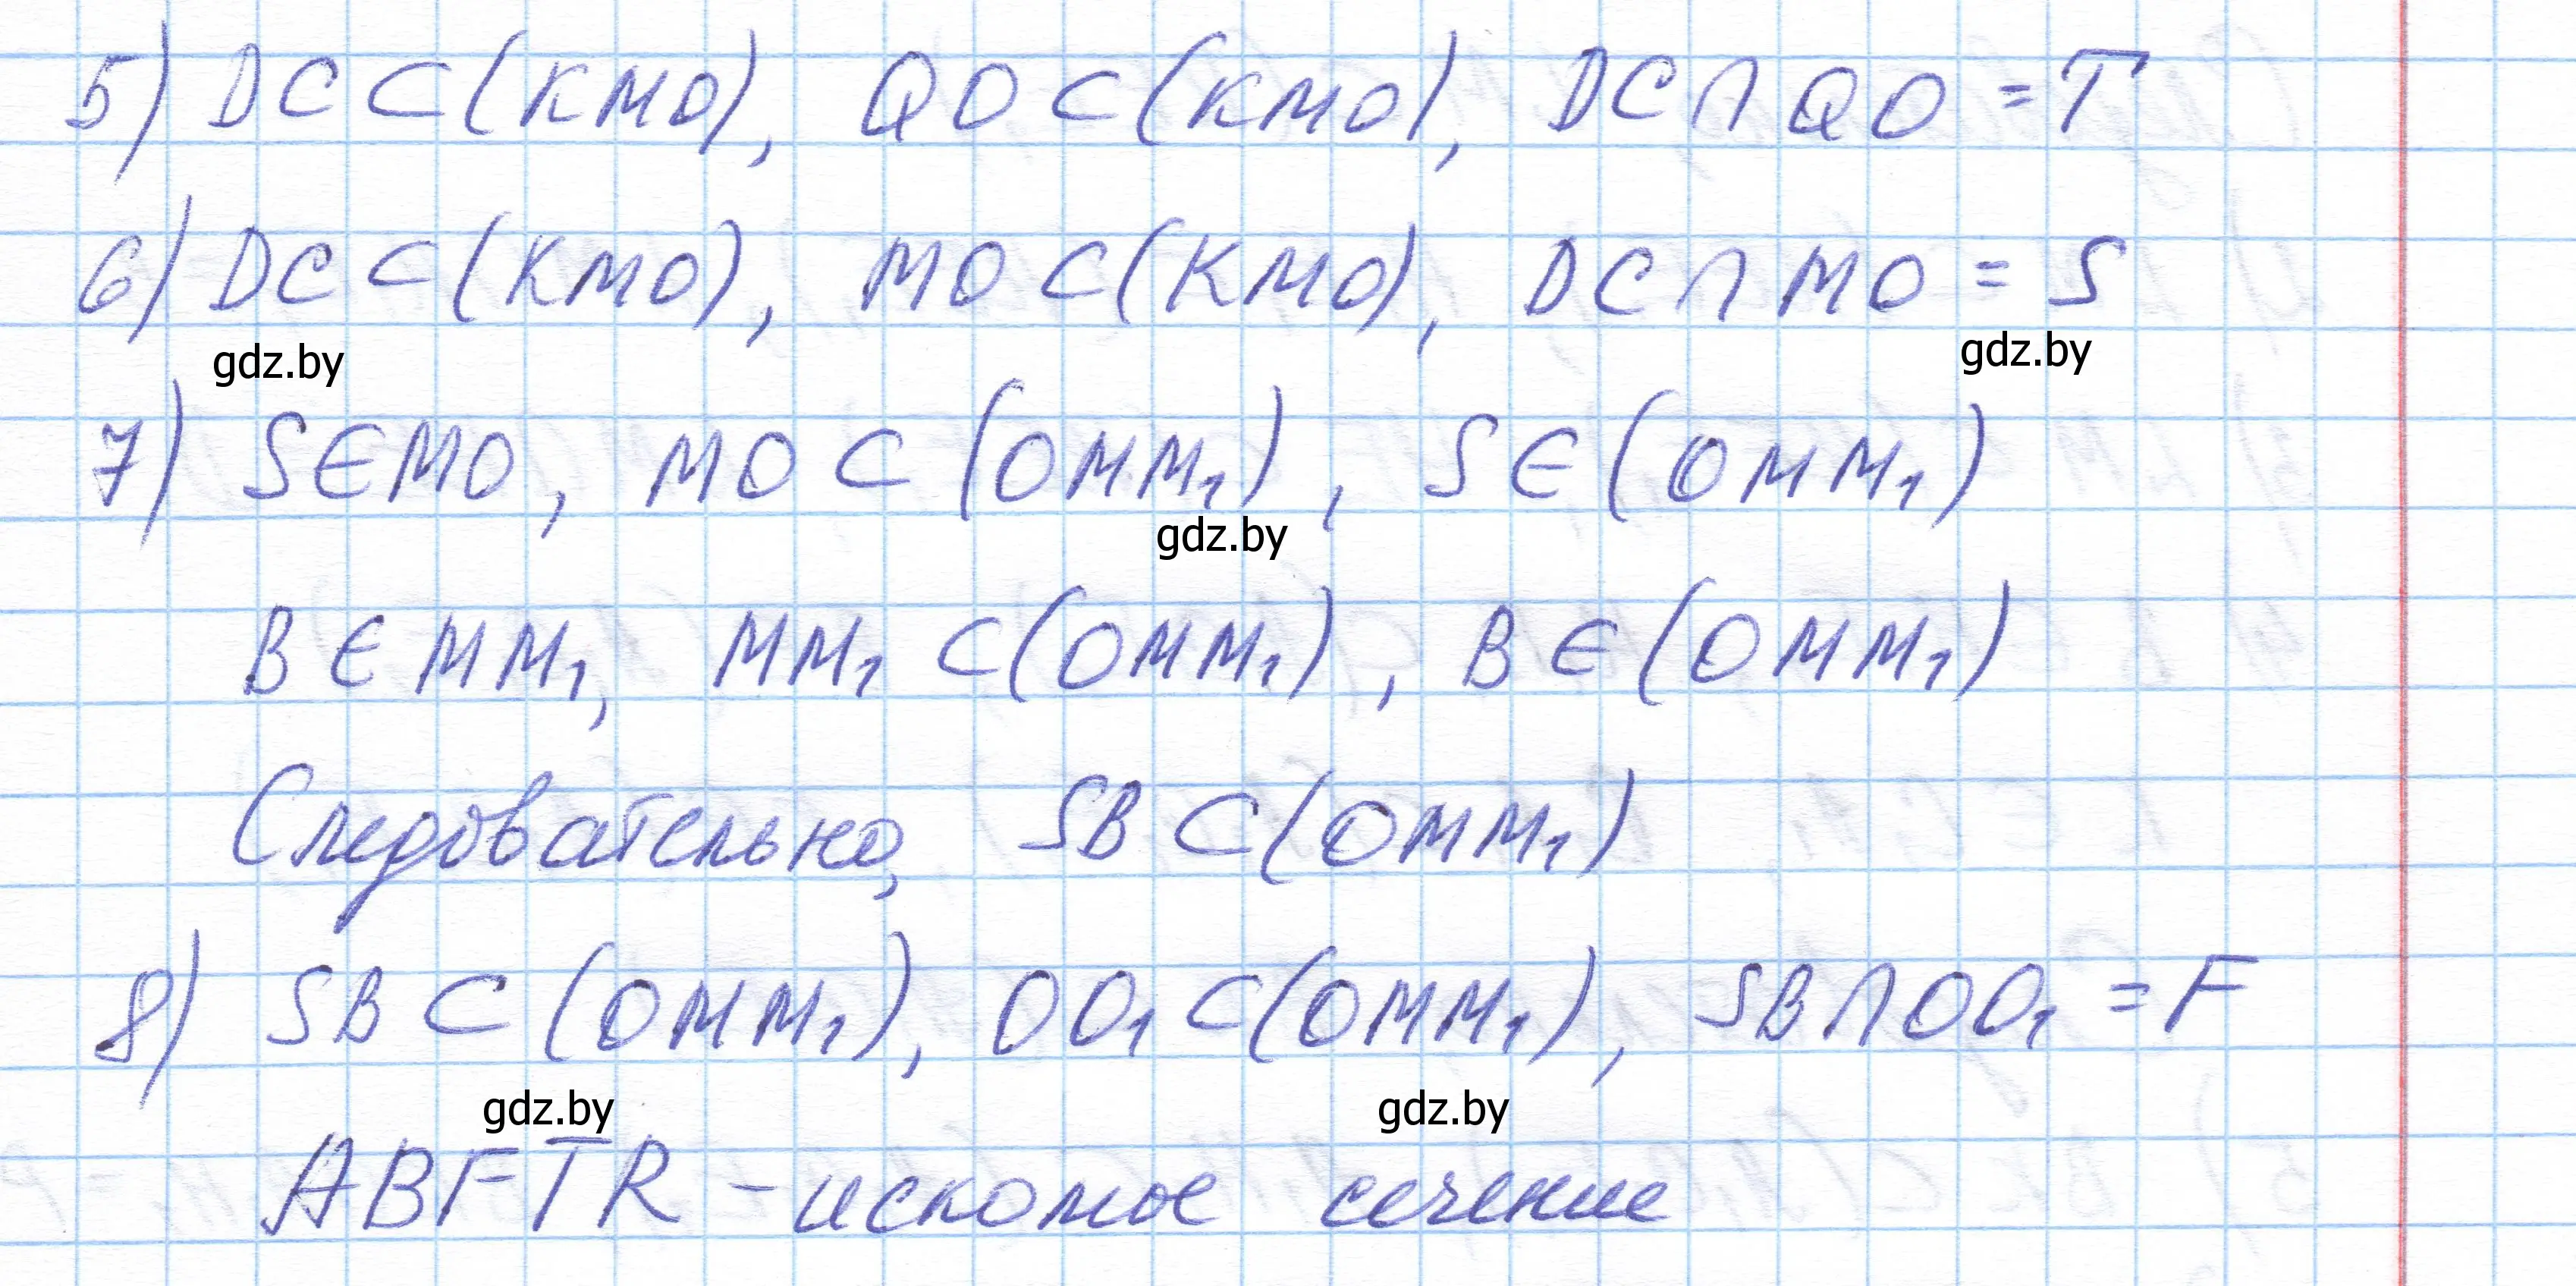 5) DC ⊂ (KMO), QO ⊂ (KMO), DC ∩ QO = T
6) DC ⊂ (KMO), MO ⊂ (KMO), DC ∩ MO = S
gdz.by gdz.by
7) S ∈ MO, MO ⊂ (OMM₁), S ∈ (OMM₁)
gdz.by
B ∈ MM₁, MM₁ ⊂ (OMM₁), B ∈ (OMM₁)
Следовательно, SB ⊂ (OMM₁)
8) SB ⊂ (OMM₁), OO₁ ⊂ (OMM₁), SB ∩ OO₁ = F
gdz.by gdz.by
ABFTR - искомое сечение